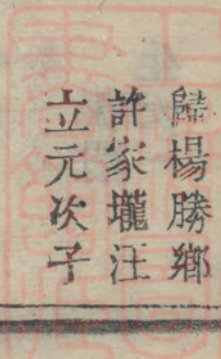 歸楊勝鄉
許家壠汪
立元次子